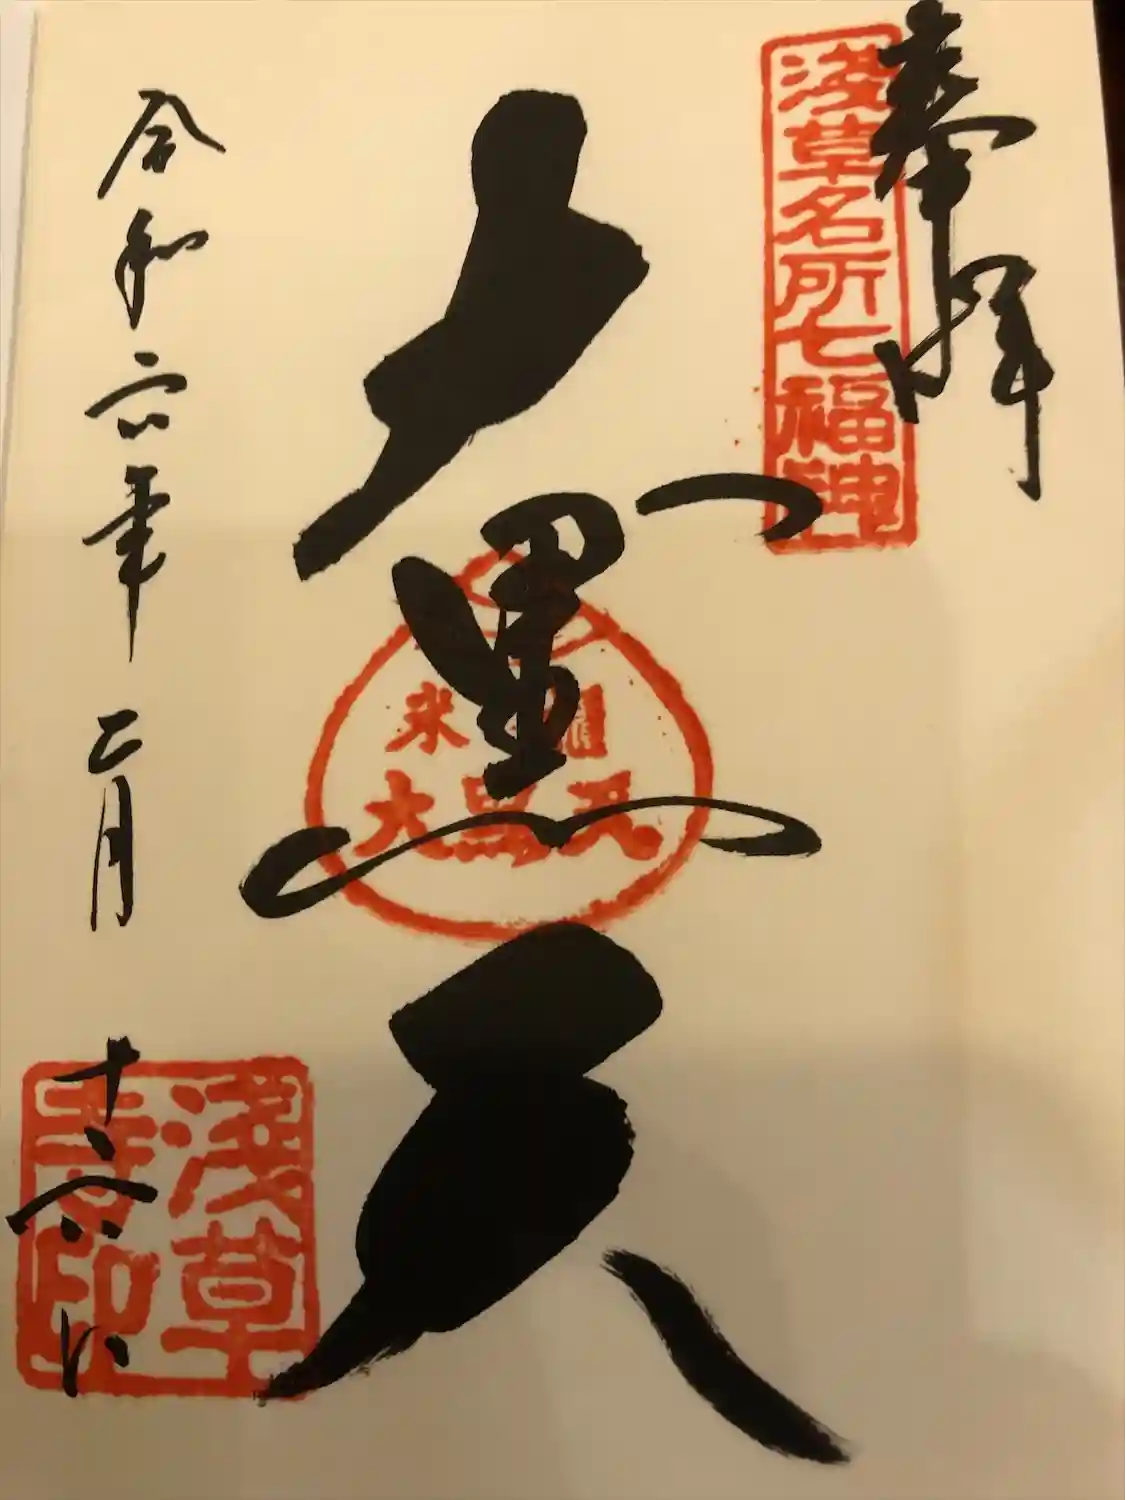 奉拝
浅草名所七福神
大黒天
米
大黒天
令和六年二月十六日
浅草
寺印